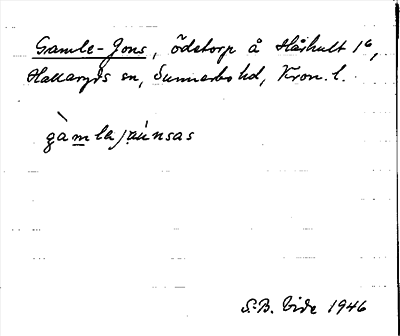 Gamle-Jons, ödetorp å Hårhult 1⁶,
Hallaryds sn, Sunnerbo hd, Kron. l.
gàmlajáunsas
S.-B. Vide 1946